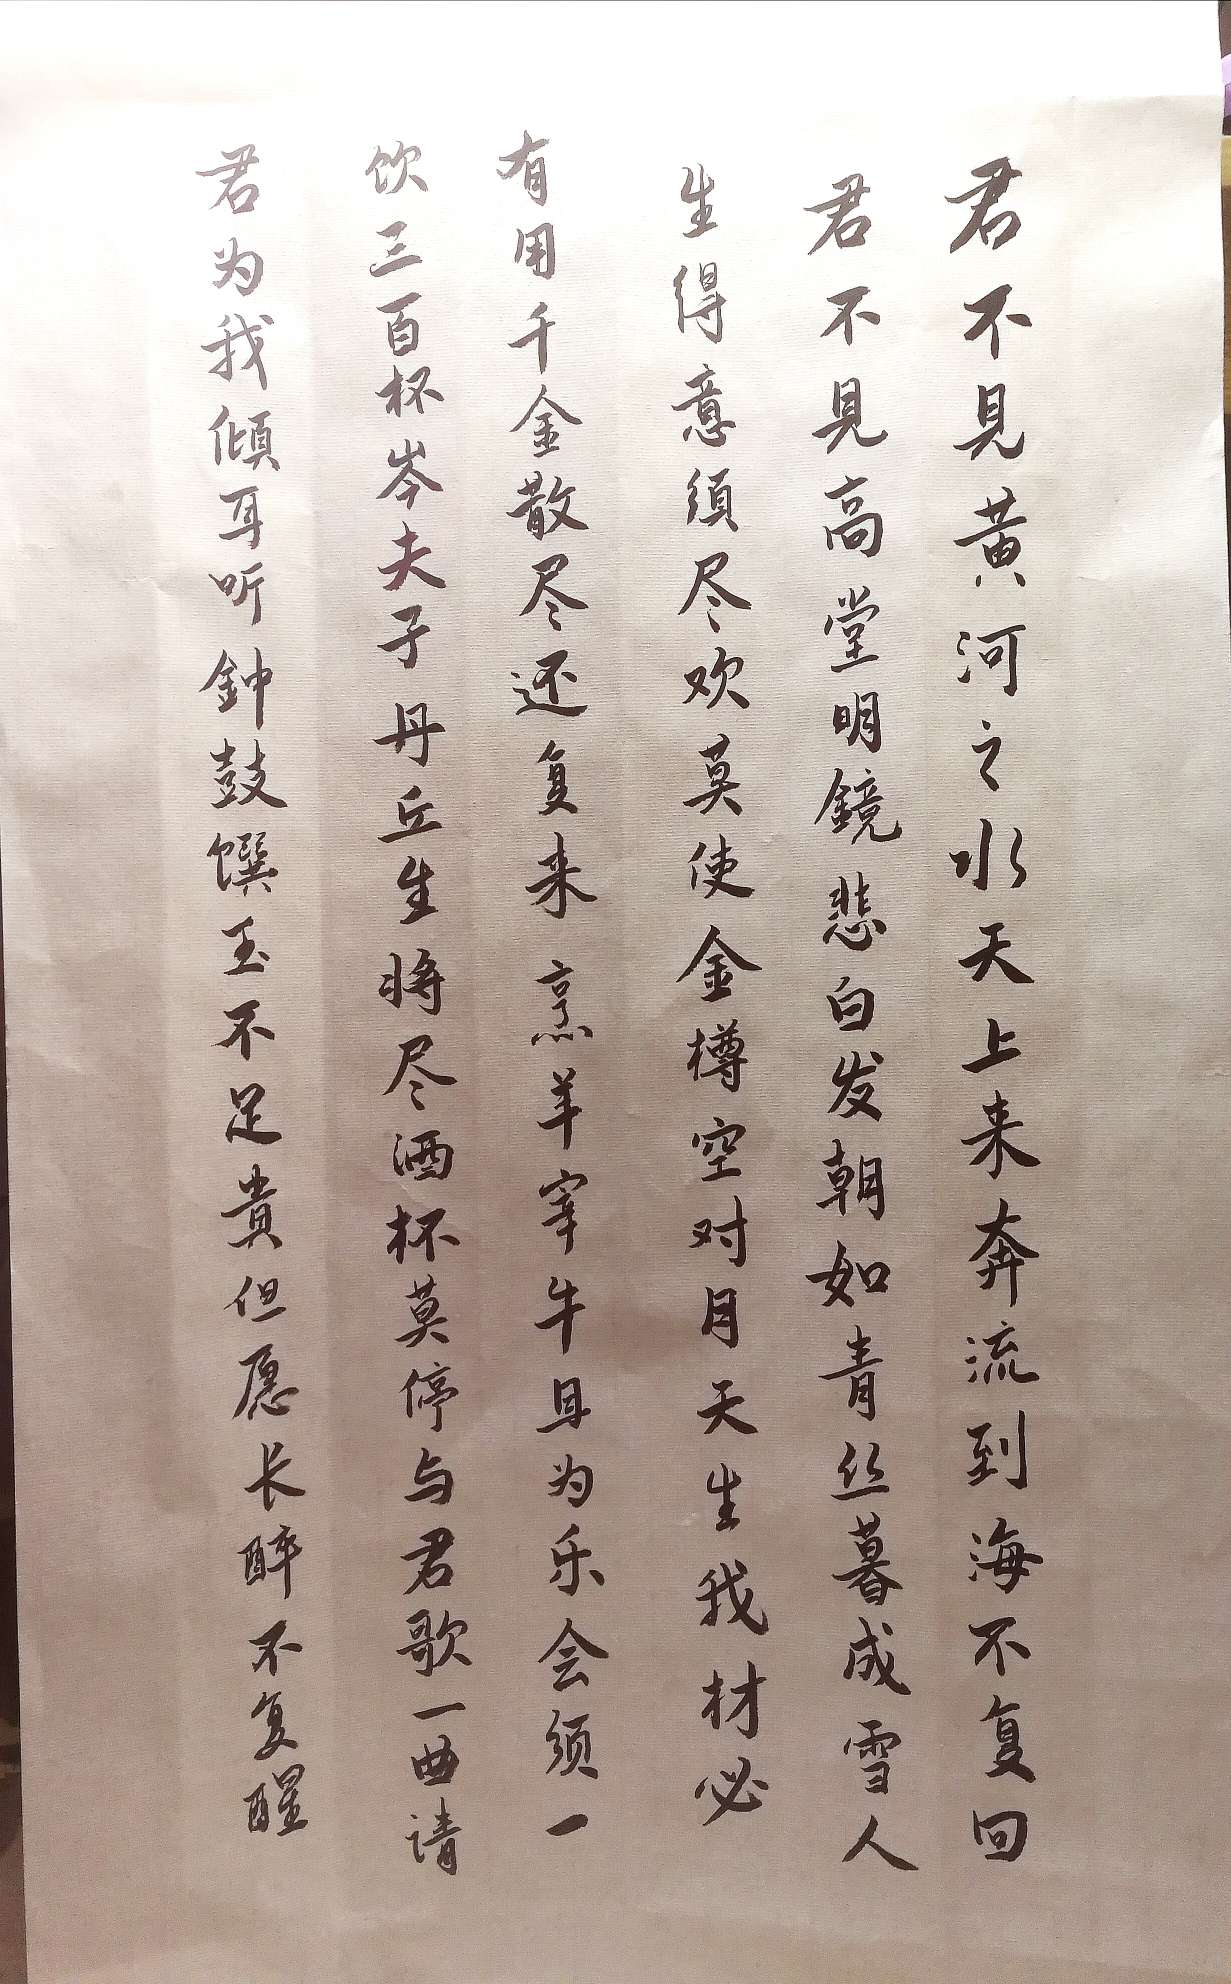 君不见黄河之水天上来奔流到海不复回
君不見高堂明鏡悲白发朝如青丝暮成雪人
生得意须尽欢莫使金樽空对月天生我材必
有用千金散尽还复来烹羊宰牛且为乐会须一
饮三百杯岑夫子丹丘生将尽酒杯莫停与君歌一曲请
君为我倾耳听鈡鼓馔玉不足貴但愿长醉不复醒